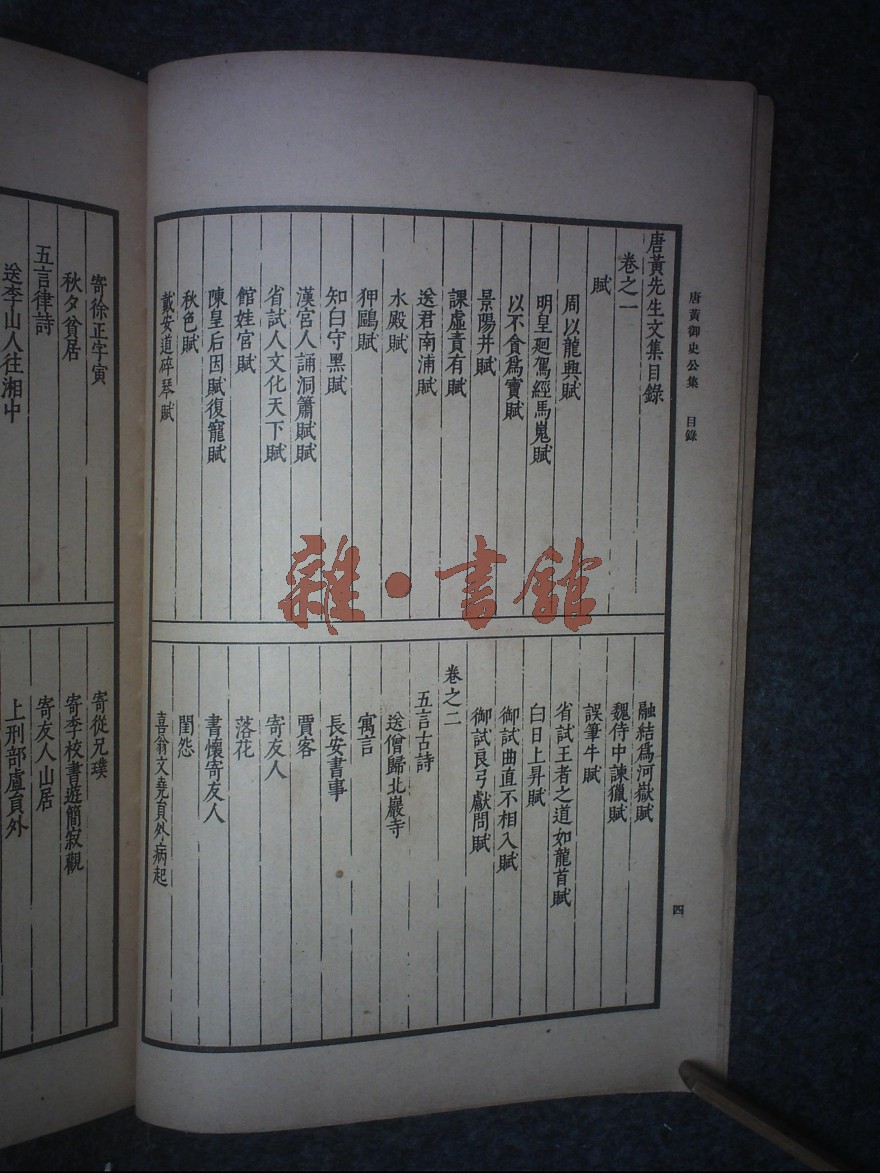 唐黃御史公集 目錄
四
唐黃先生文集目錄
卷之一
賦
周以龍興賦
明皇廻駕經馬嵬賦
以不貪爲寶賦
景陽井賦
課虛責有賦
送君南浦賦
水殿賦
狎鷗賦
知白守黑賦
漢宮人誦洞簫賦賦
省試人文化天下賦
館娃宮賦
陳皇后因賦復寵賦
秋色賦
戴安道碎琴賦
融結爲河嶽賦
魏侍中諫獵賦
誤筆牛賦
省試王者之道如龍首賦
白日上昇賦
御試曲直不相入賦
御試良弓獻問賦
卷之二
五言古詩
送僧歸北巖寺
寓言
長安書事
賈客
寄友人
落花
書懷寄友人
閨怨
喜翁文堯員外病起
寄徐正字寅
秋夕貧居
五言律詩
送李山人往湘中
寄從兄璞
寄李校書遊簡寂觀
寄友人山居
上刑部盧員外
雜·書館